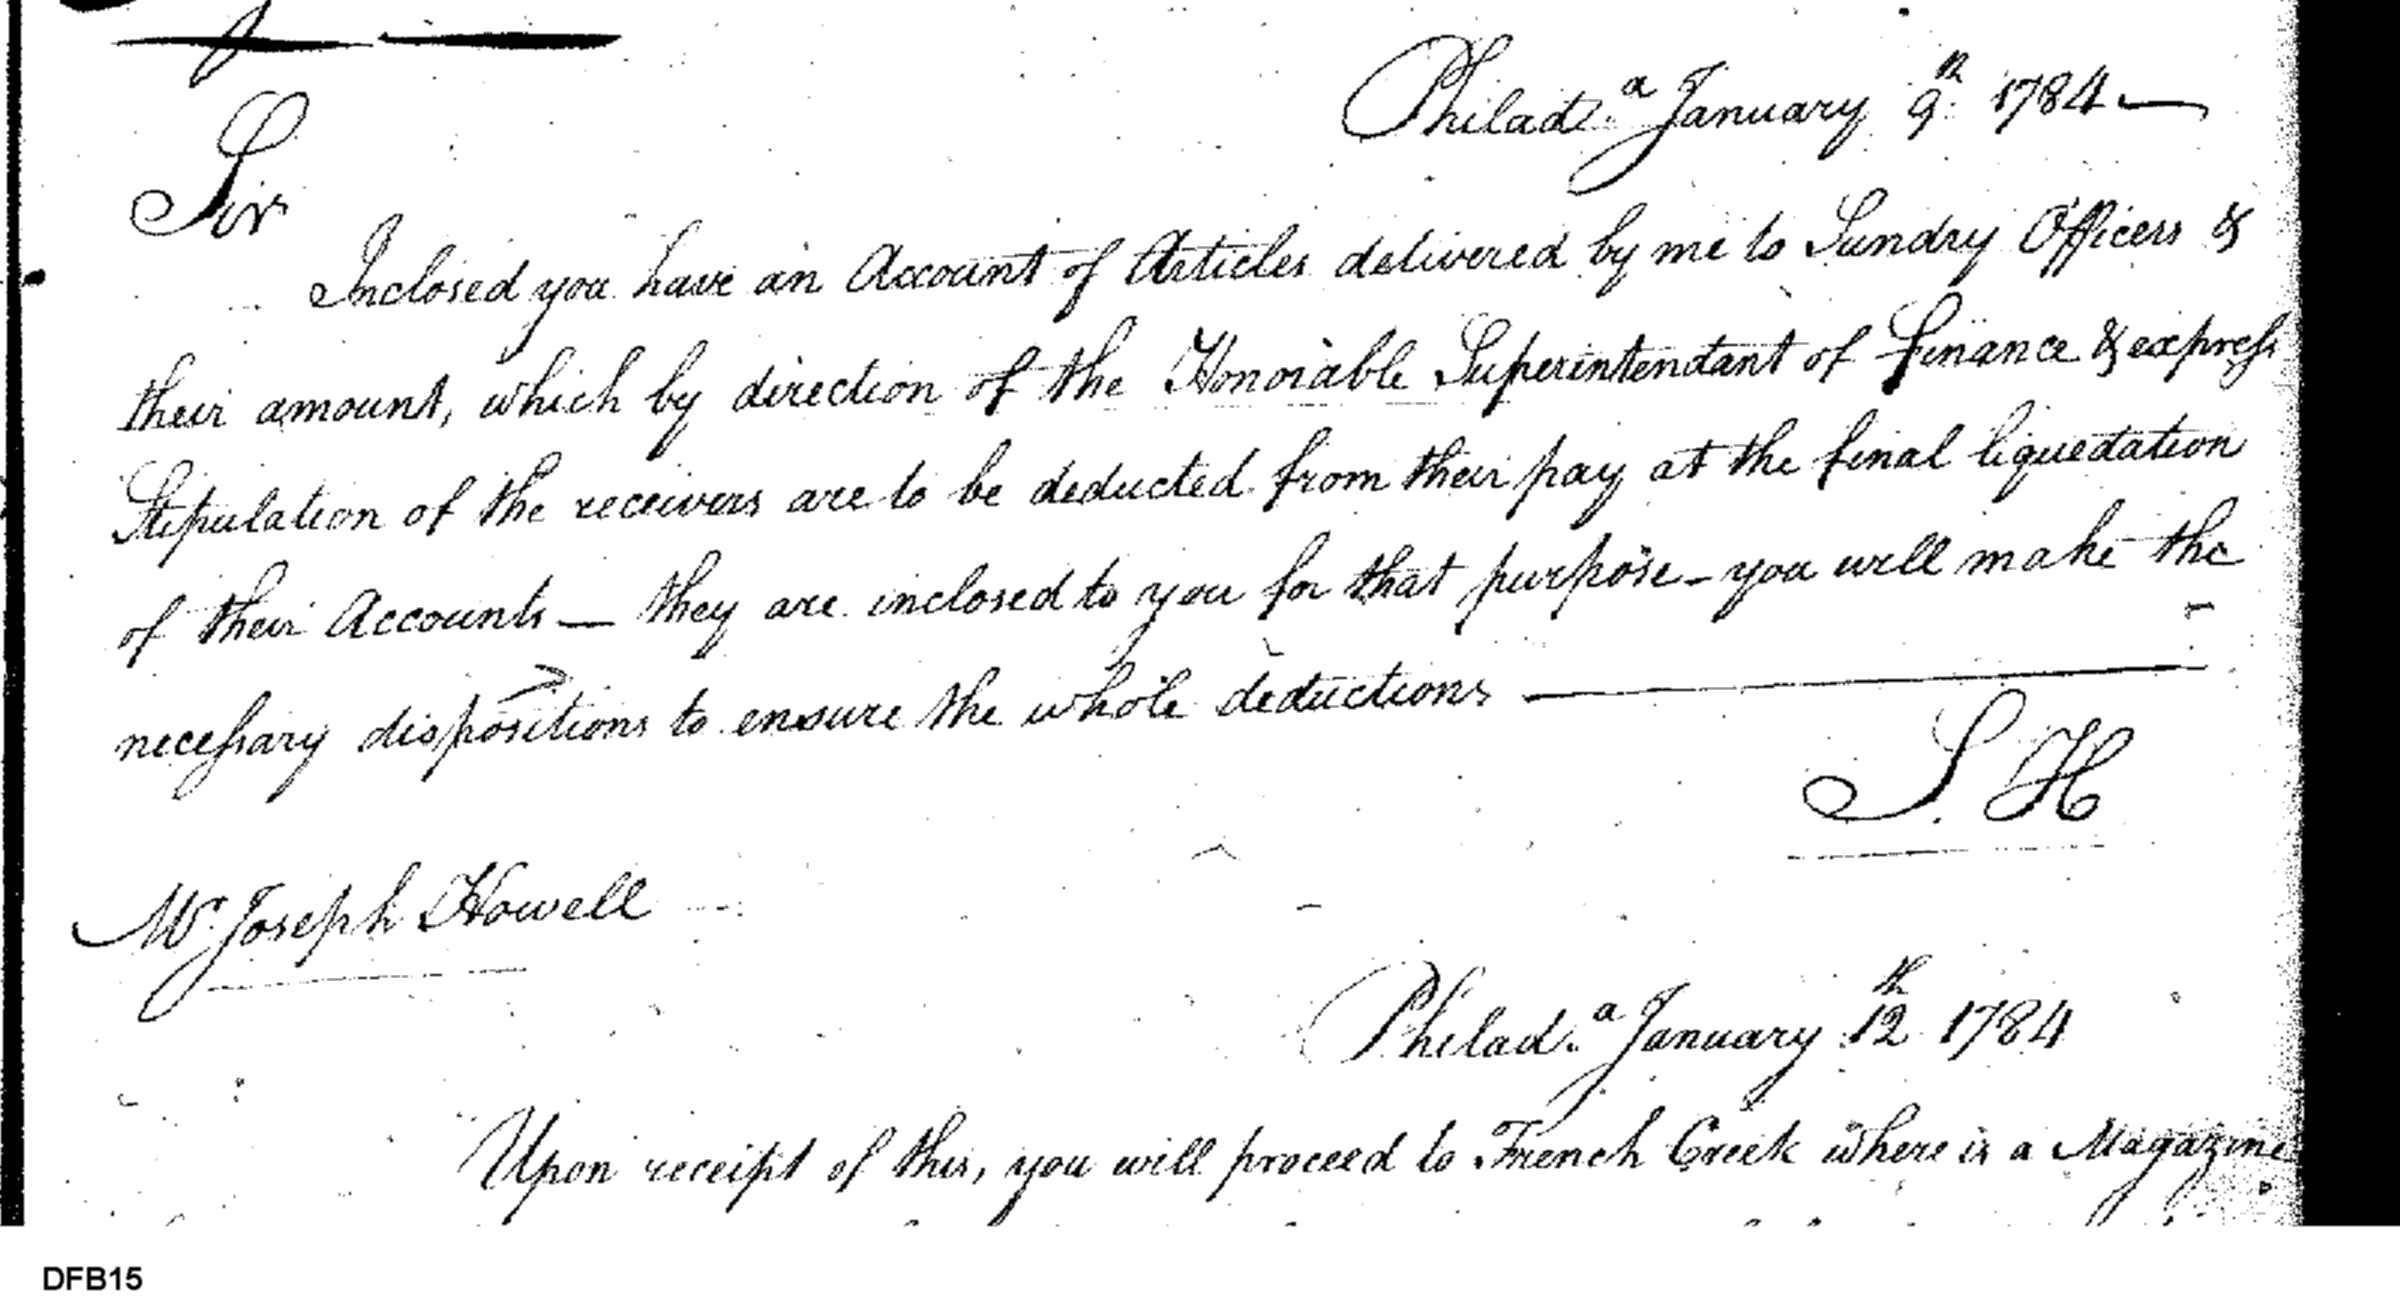 Philad.ª January 9th 1784
Sir
Inclosed you have an Account of Articles delivered by me to Sundry Officers &
their amount, which by direction of the Honorable Superintendant of finance & express
Stipulation of the receivers are to be deducted from their pay at the final liquedation
of their Accounts — they are inclosed to you for that purpose — you will make the
necessary dispositions to ensure the whole deductions —
S. H
Mr. Joseph Howell
Philad.ª January 12th 1784
Upon receipt of this, you will proceed to French Creek where is a Magazine
DFB15